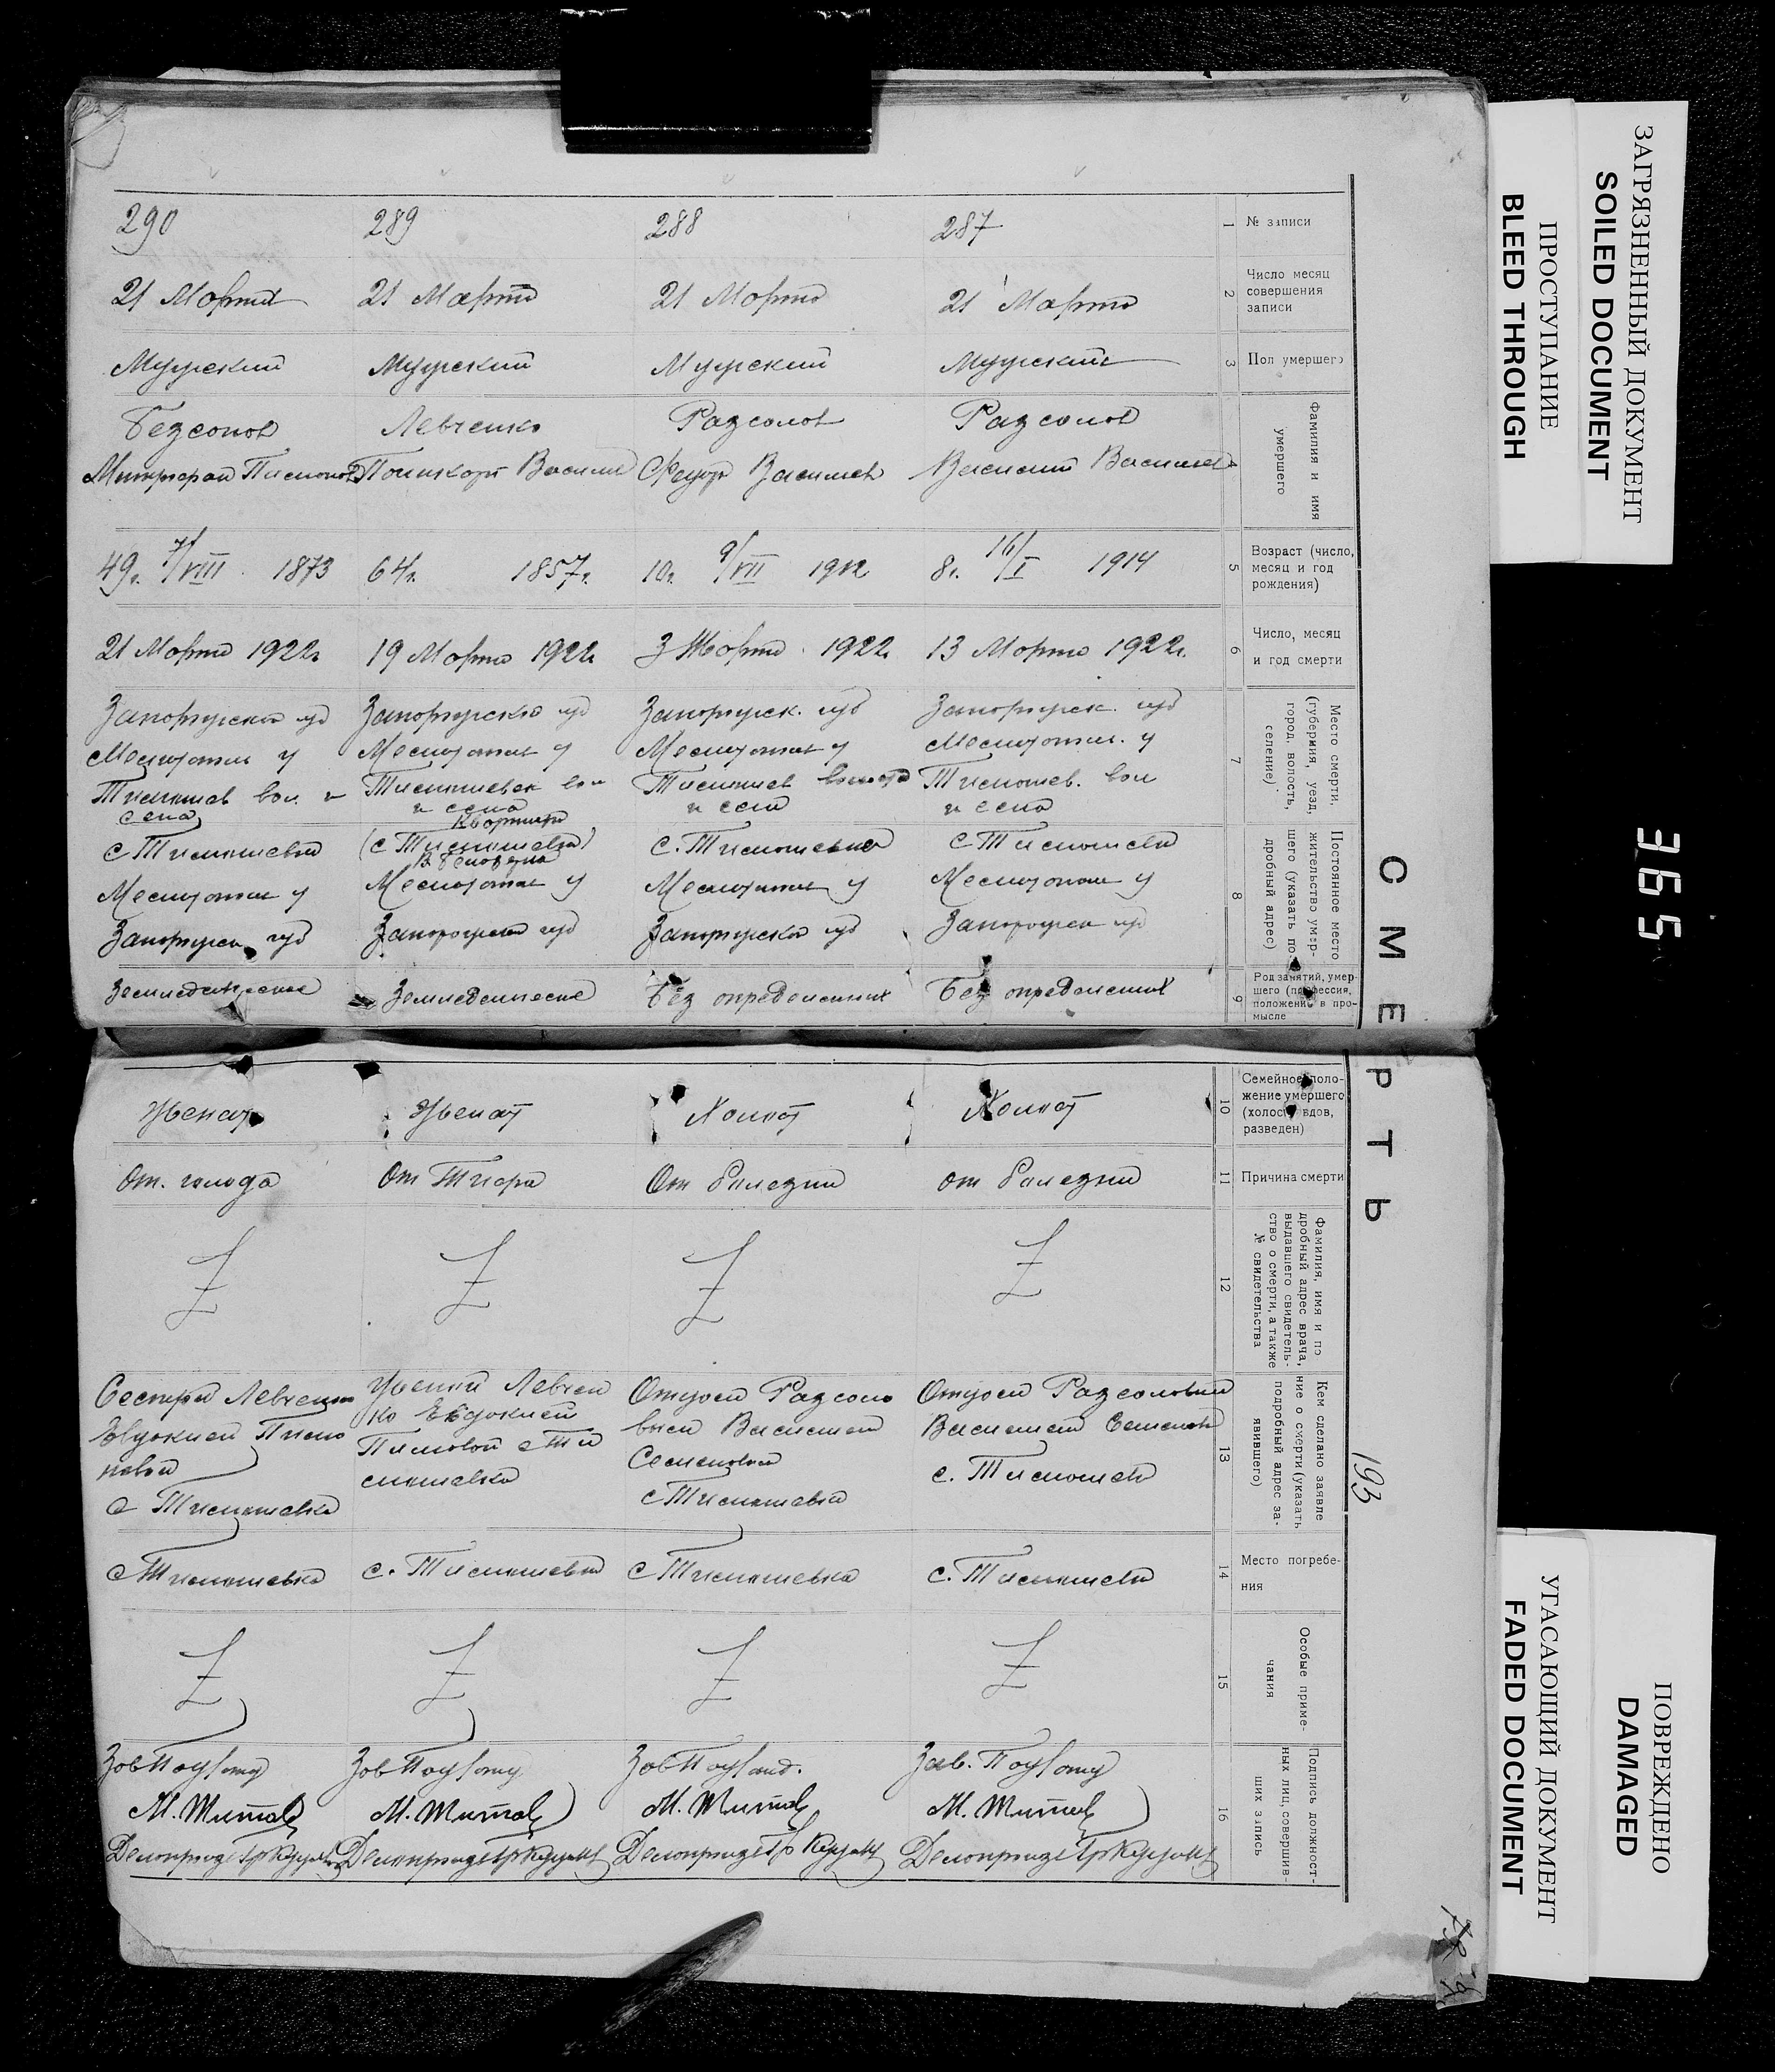 ЗАГРЯЗНЕННЫЙ ДОКУМЕНТ
SOILED DOCUMENT
ПРОСТУПАНИЕ
BLEED THROUGH
365
СМЕРТЬ
193
1
№ записи
287
288
289
290
2
Число месяц
совершения
записи
21 Марта
21 Марта
21 Марта
21 Марта
3
Пол умершего
Мужский
Мужский
Мужский
Мужский
4
Фамилия и имя
умершего
Разсолов
Василий Васильев
Разсолов
Федор Васильев
Левченко
Василь
Безсонов
Митрофан
5
Возраст (число,
месяц и год
рождения)
8 г. 16/I 1914
10 г. 9/VII 1912
64 г. 1857 г.
49 г. 7/VIII 1873
6
Число, месяц
и год смерти
13 Марта 1922 г.
3 Марта 1922 г.
19 Марта 1922 г.
21 Марта 1922 г.
7
Место смерти,
(губерния, уезд,
город, волость,
селение)
Запорожск. губ
Мелитопол. у
Тимошев. вол
и села
Запорожск. губ
Мелитопол у
Тимошев
и села
Запорожско губ
Мелитопол у
Тимошевск вол
и села
Запорожско губ
Мелитопол у
Тимошев вол. и
села
8
Постоянное место
жительство умер-
шего (указать по-
дробный адрес)
с Тимошевка
Мелитопол у
Запорожск губ
с. Тимошевка
Мелитопол у
Запорожско губ
Квартира
(с Тимошевка)
Мелитопол у
Запорожско губ
с Тимошевка
Мелитопол у
Запорожск губ
9
Род занятий, умер-
шего (профессия,
положение в про-
мысле
Без определенных
Без определенных
Земледелческие
Земледелческие
10
Семейное поло-
жение умершего
(холост, вдов,
разведен)
Холост
Холост
Женат
Женат
11
Причина смерти
от болезни
От болезни
От Тифа
От. голода
12
Фамилия, имя и по
дробный адрес врача,
выдавшего свидетель-
ство о смерти, а также
№ свидетельства
Z
Z
Z
Z
13
Кем сделано заявле
ние о смерти (указать
подробный адрес за-
явившего)
Отцом Разсоловым
Василием Семенов
с. Тимошевка
Отцом Разсоло
вым Василием
Семеновым
с Тимошевка
Женой Левчен
ко Евдокией
с Ти
мошевка
Сестрой Левченко
Евдокией
с Тимошевка
14
Место погребе-
ния
с. Тимошевка
с Тимошевка
с. Тимошевка
с Тимошевка
15
Особые приме-
чания
Z
Z
Z
Z
16
Подпись должност-
ных лиц, совершив-
ших запись
Зав.
М. Титов
Зав
М. Титов
Зав
М. Титов
Зав
М. Титов
УГАСАЮЩИЙ ДОКУМЕНТ
FADED DOCUMENT
ПОВРЕЖДЕНО
DAMAGED